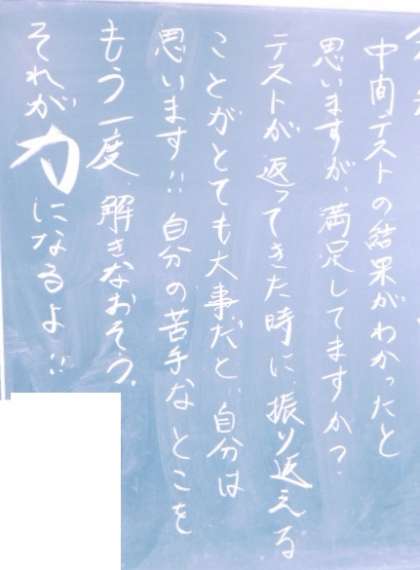 中間テストの結果がわかったと
思いますが、満足してますか？
テストが返ってきた時に、振り返える
ことがとても大事だと、自分は
思います!! 自分の苦手なとこを
もう一度、解きなおそう。
それが力になるよ!!